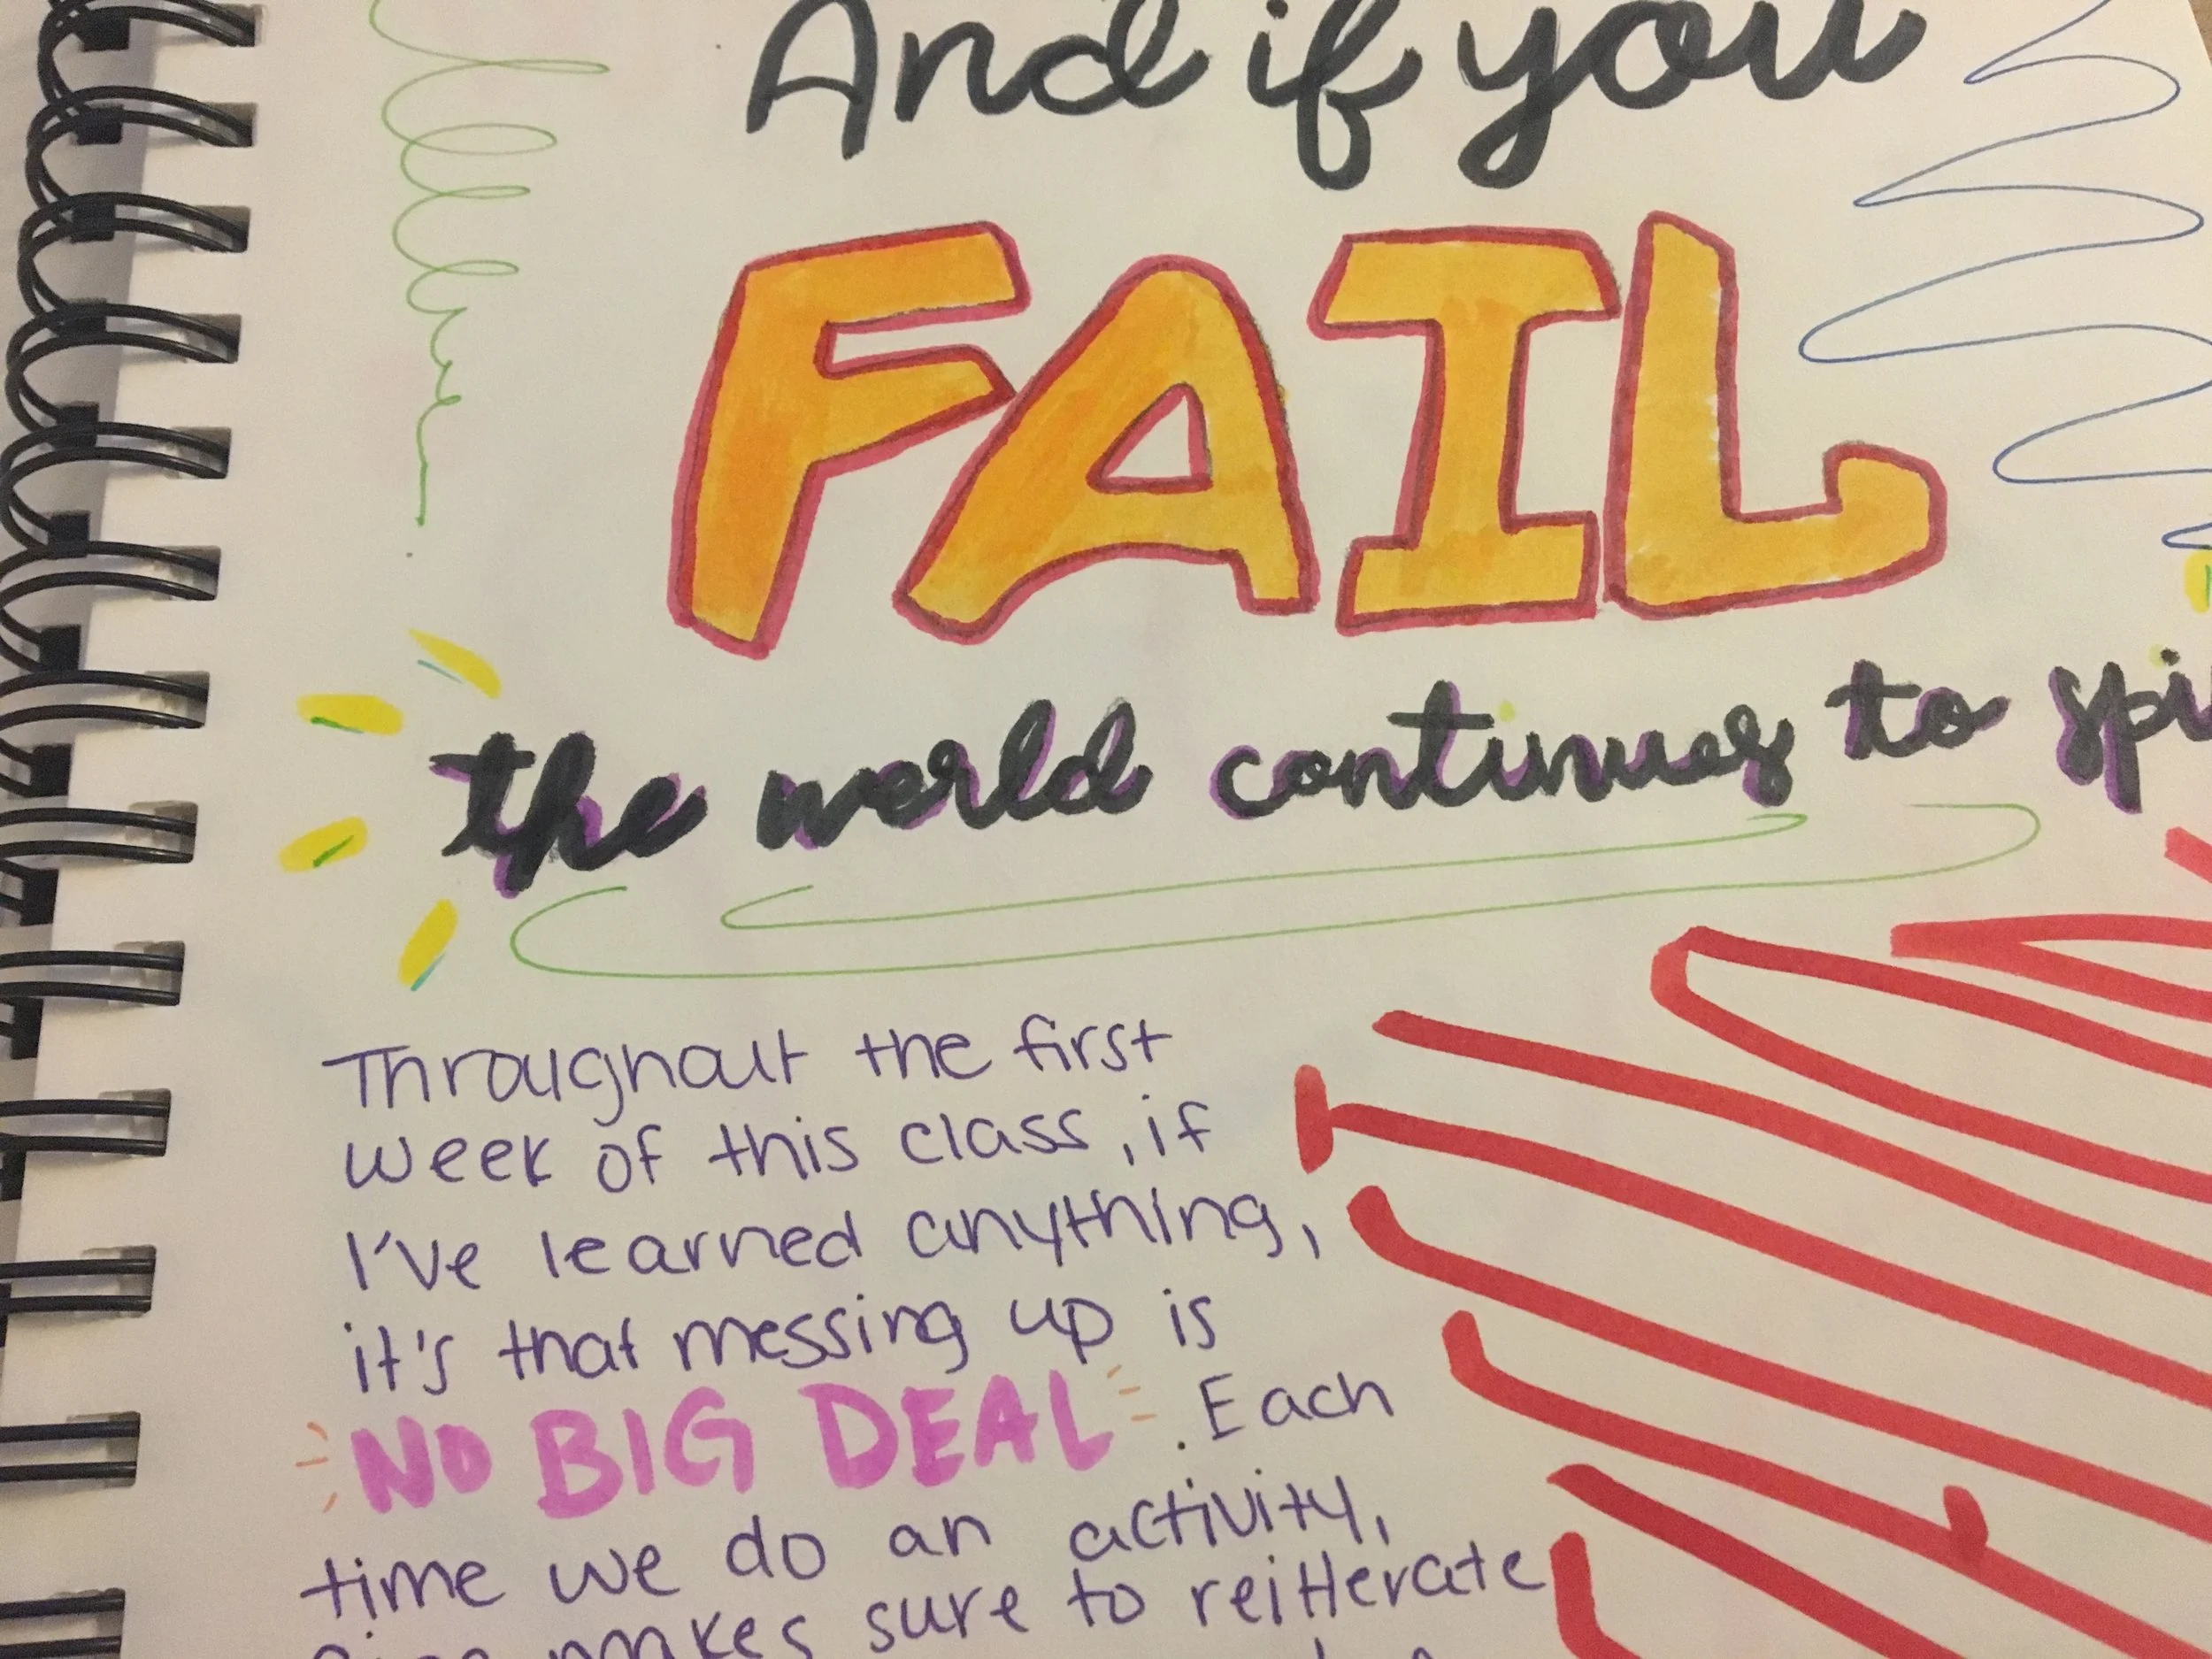 And if you
FAIL
the world continues to spi
Throughout the first
week of this class, if
I've learned anything,
it's that messing up is
NO BIG DEAL. Each
time we do an activity,
makes sure to reitterate